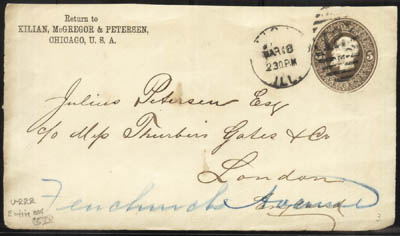 Return to
KILIAN, McGREGOR & PETERSEN,
CHICAGO, U. S. A.
MAR 18
2 30 PM
ILL.
5
Julius Petersen Esq
c/o Mess Thurbers Gates & Co
London
England
Fenchurch Avenue
U-222